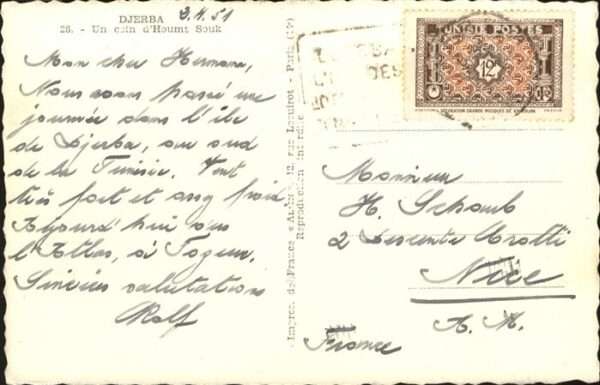 DJERBA
3.1.51
26. - Un coin d'Houmt Souk
Mon cher Hermann,
Nous avons passé une
journée dans l'île
de Djerba, au sud
de la Tunisie. Vent
très fort et assez froid
Aujourd'hui dans
l'Atlas, à Tozeur.
Sincères salutations
Rolf
Impres. de France - Paris (19e)
Reproduction interdite
TUNISIE POSTES
12F
Monsieur
H. Schaub
2 Descente Crotti
Nice
A. M.
France